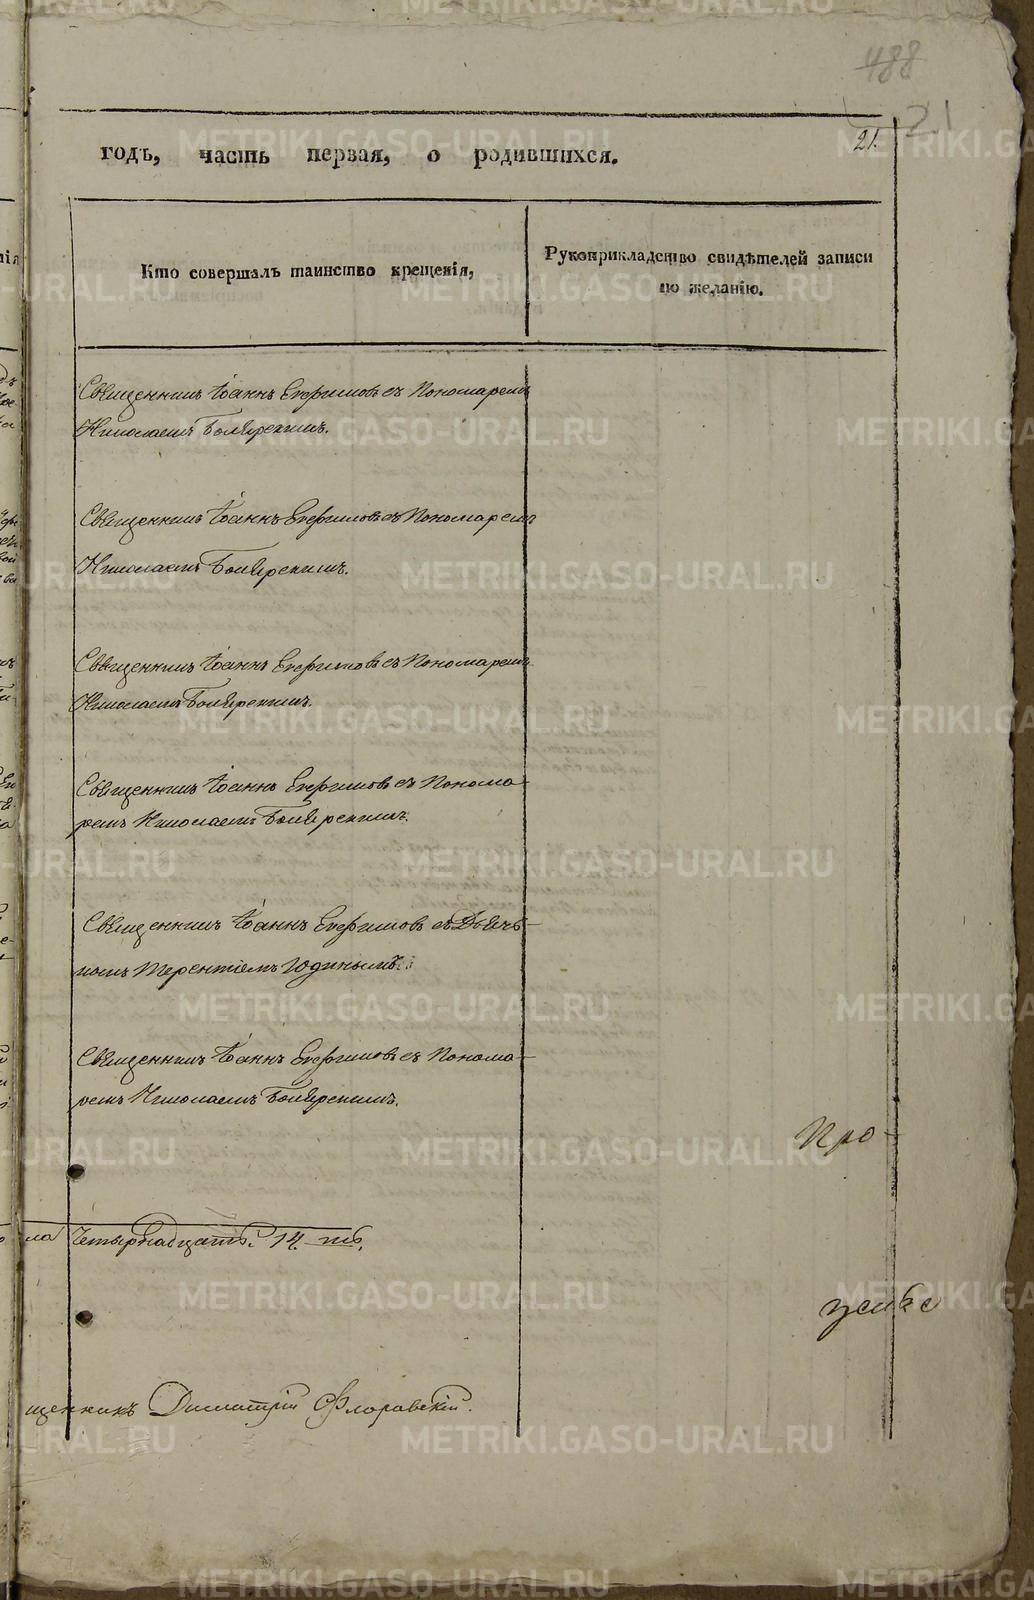 488
21
21.
годъ, часть первая, о родившихся.
Кто совершалъ таинство крещенія,
Рукоприкладство свидѣтелей записи
по желанію.
Священникъ Іоаннъ Ефимовъ съ Пономаремъ
Николаемъ Боярскимъ.
Священникъ Іоаннъ Ефимовъ съ Пономаремъ
Николаемъ Боярскимъ.
Священникъ Іоаннъ Ефимовъ съ Пономаремъ
Николаемъ Боярскимъ.
Священникъ Іоаннъ Ефимовъ съ Понома-
ремъ Николаемъ Боярскимъ.
Священникъ Іоаннъ Ефимовъ съ Дьяч-
комъ Терентіемъ Юдинымъ.
Священникъ Іоаннъ Ефимовъ съ Понома-
ремъ Николаемъ Боярскимъ.
Про-
ла Четырнадцать. 14. ть.
щенникъ Димитрій Флоровскій.
METRIKI.GASO-URAL.RU